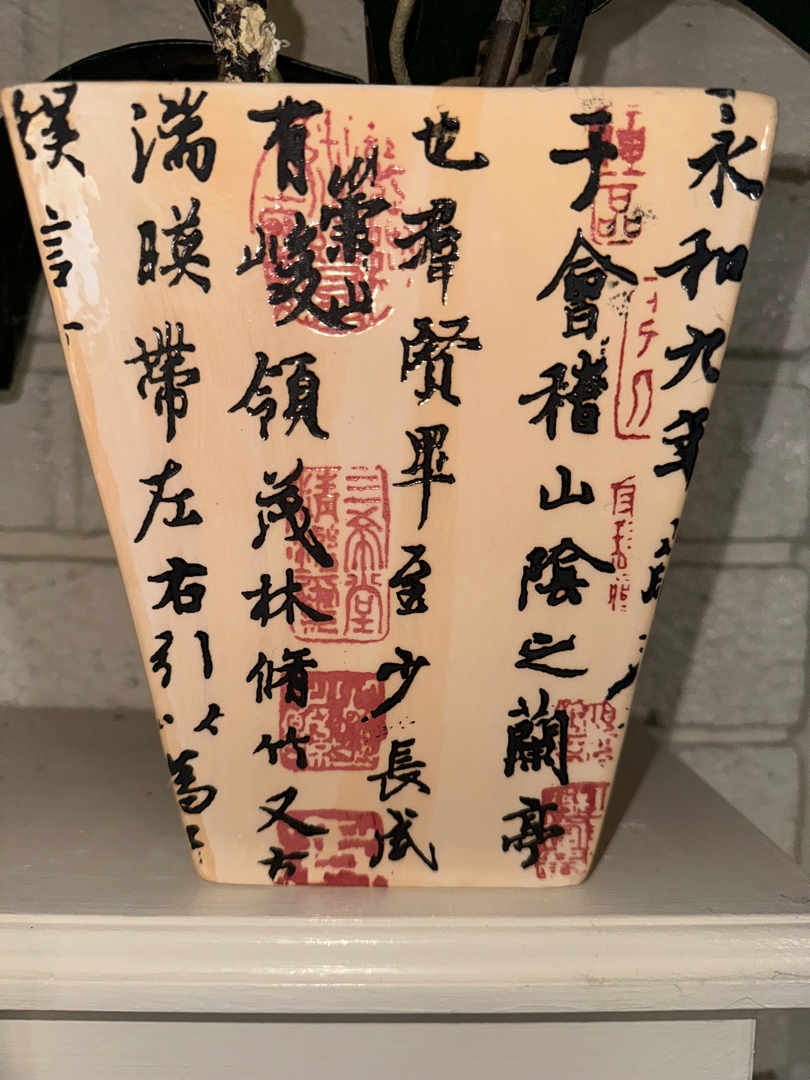 永和九年
于會稽山陰之蘭亭
也羣賢畢至少長咸
有崇山峻領茂林脩竹又
湍暎帶左右引以為
言
三希堂
精鑑璽